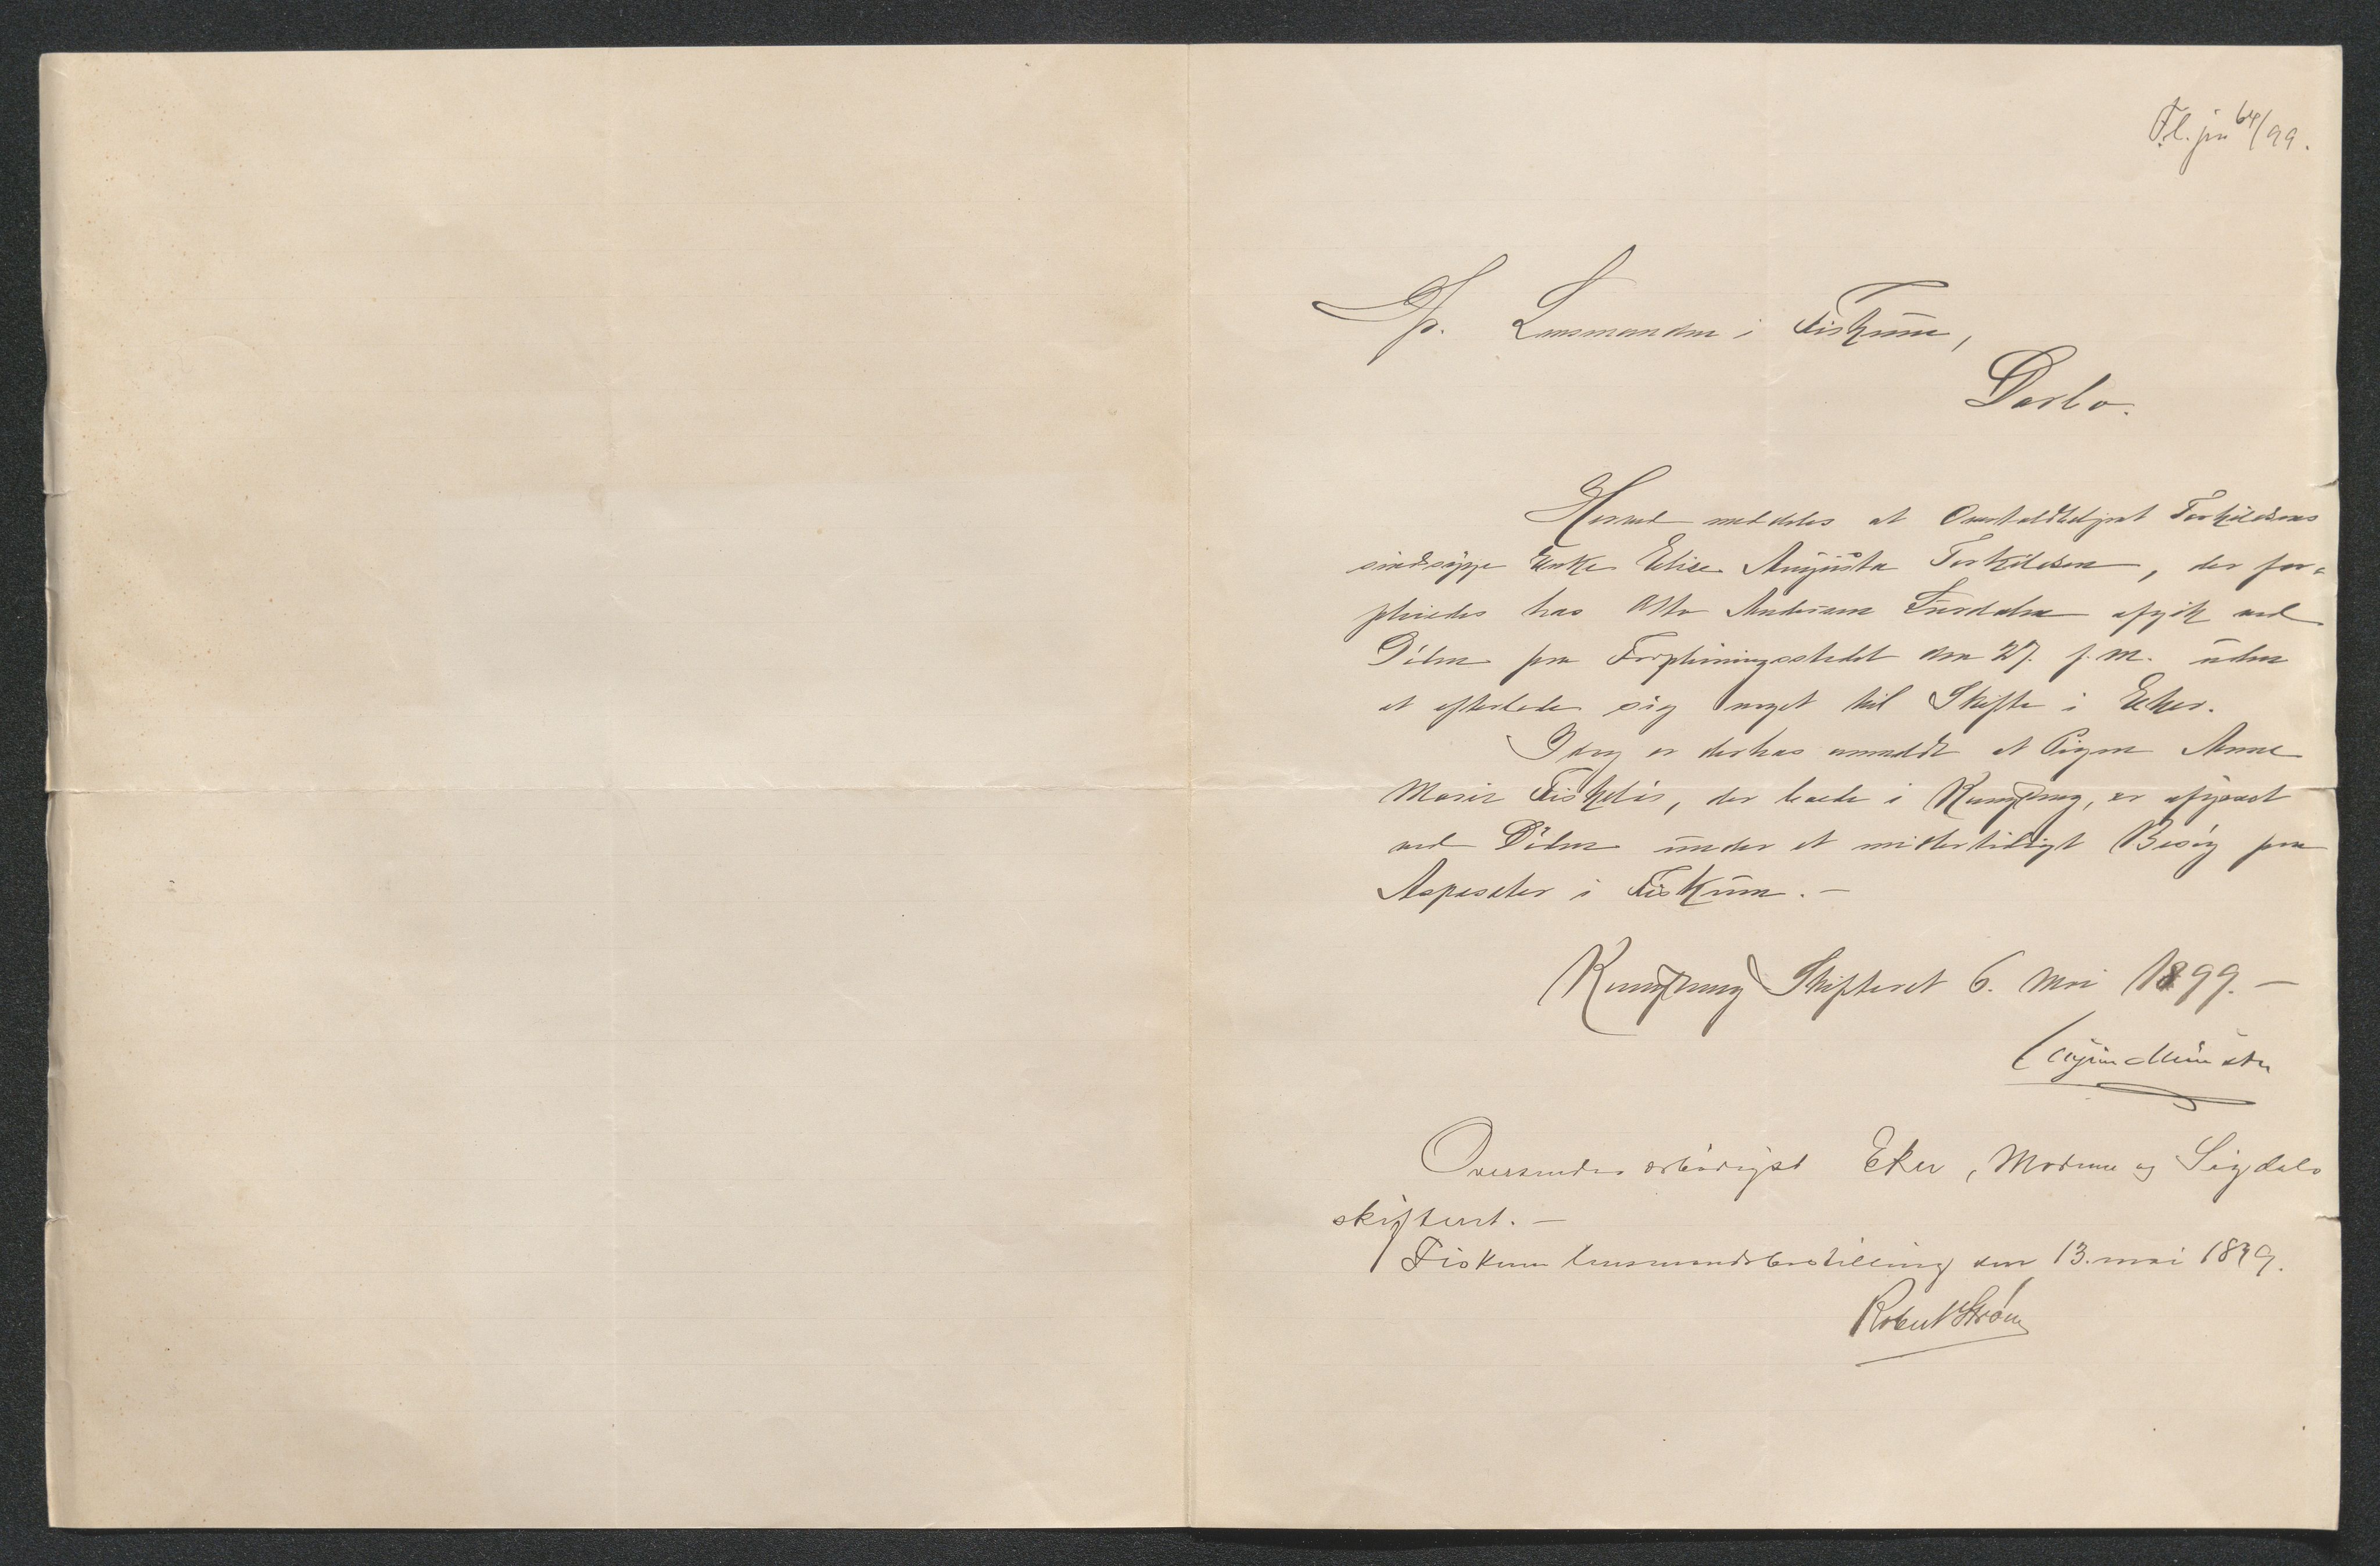 F.l. jnr 64/99.
Hr. Lensmanden i Fiskum,
Darbo.
Herved meddeles at Overtoldbetjent Torkildsens
sindssyge Enke Elise Augusta Torkildsen, der for-
pleiedes hos Otto Andersen Fuserdalen afgik ved
Døden paa Forpleiningsstedet den 27. f.M. uden
at efterlade sig noget til Skifte i Eker.
Idag er derhos anmeldt at Pigen Anne
Marie Fiskeløs, der boede i Kongsberg, er afgaaet
ved Døden under et midlertidigt Besøg paa
Aspeseter i Fiskum. –
Kongsberg Skifteret 6. Mai 1899. –
Münster
Oversendes ærbødigst Eker, Modum og Sigdals
skifteret. –
Fiskum lensmandsbestilling den 13. mai 1899.
Robert Strøm